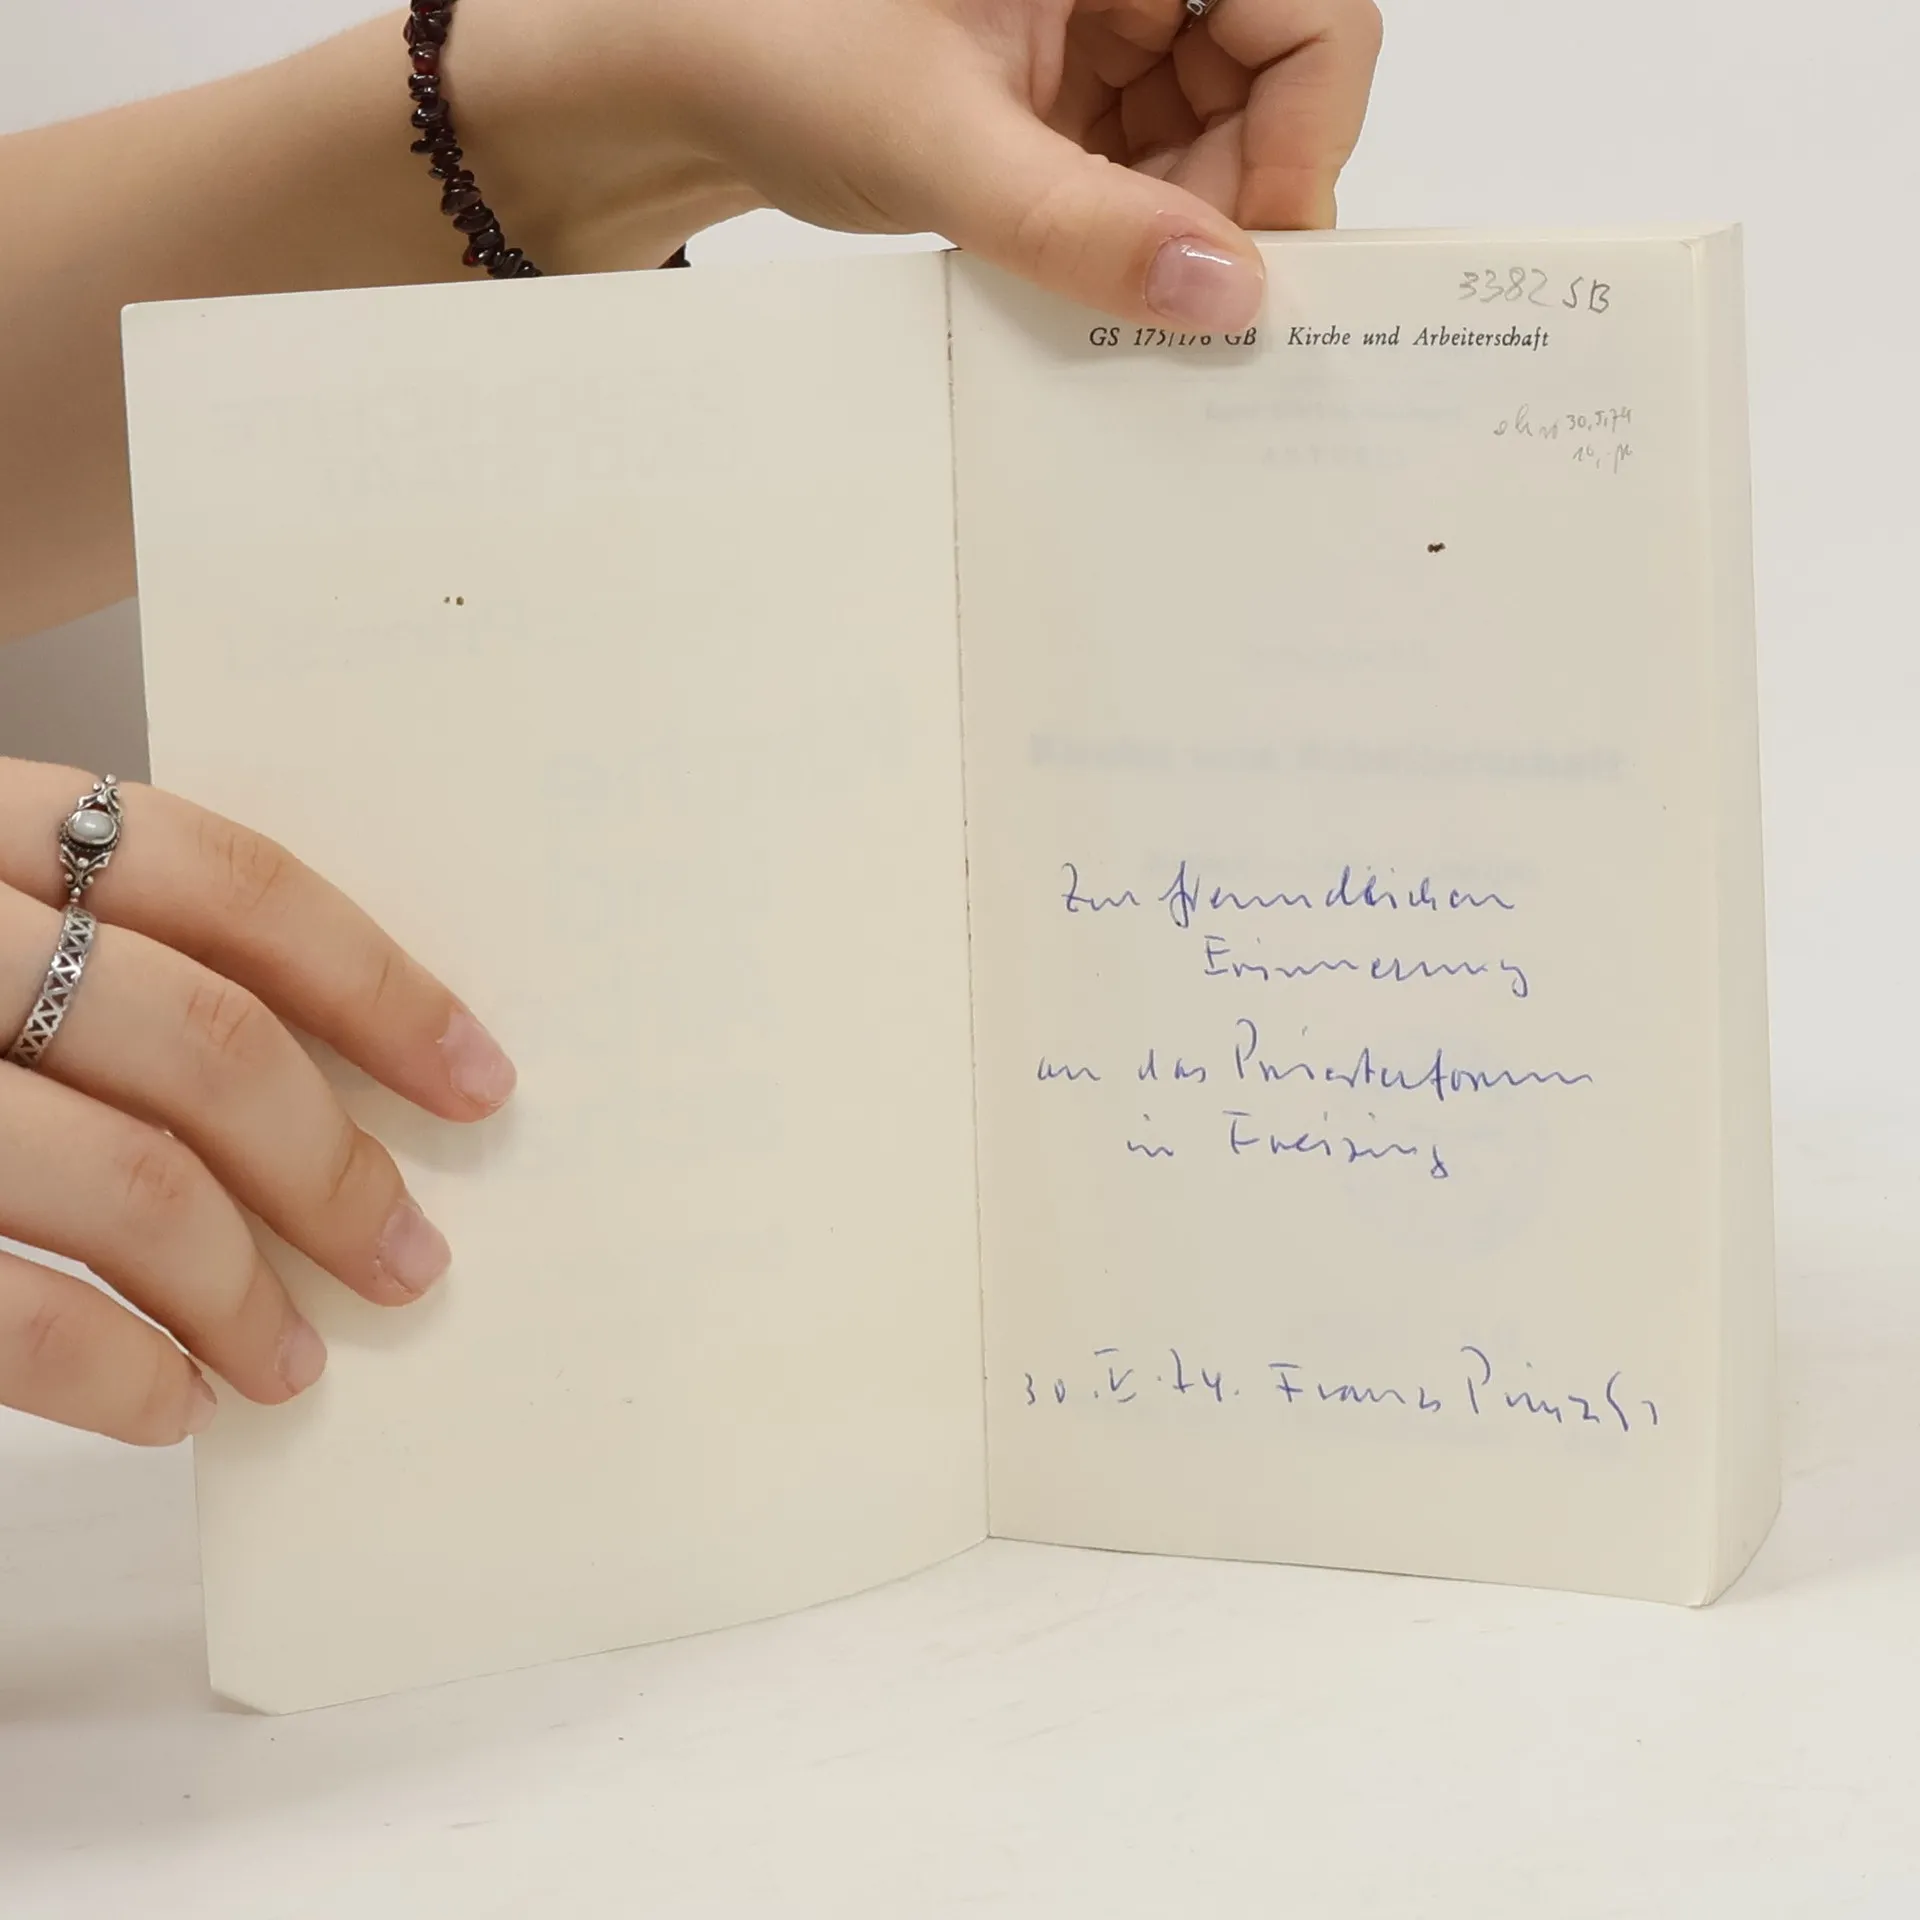 3382 SB
GS 175/176 GB Kirche und Arbeiterschaft
30.5.74
Zur freundlichen
Erinnerung
an das Priesterforum
in Freising
30.V.74. Franz Prinz SJ